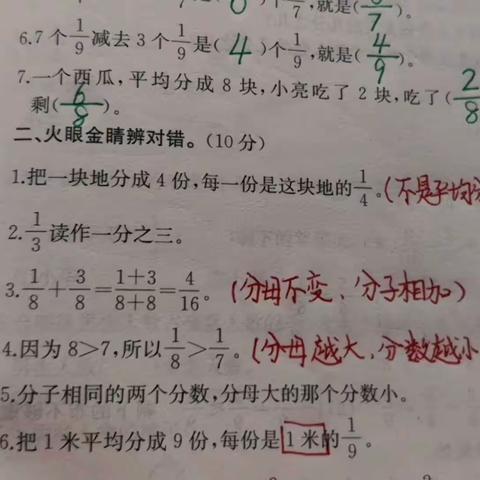 7 个 1/7,就是( /7 )。
6.7 个 1/9 减去 3 个 1/9 是( 4 )个 1/9,就是( 4/9 )。
7.一个西瓜,平均分成 8 块,小亮吃了 2 块,吃了( 2/8
剩( 6/8 )。
二、火眼金睛辨对错。(10 分)
1.把一块地分成 4 份,每一份是这块地的 1/4。(不是平均分
2. 1/3 读作一分之三。
3. 1/8 + 3/8 = 1+3/8+8 = 4/16。(分母不变、分子相加)
4.因为 8>7,所以 1/8 > 1/7。(分母越大,分数越小
5.分子相同的两个分数,分母大的那个分数小。
6.把 1 米平均分成 9 份,每份是 1 米的 1/9。